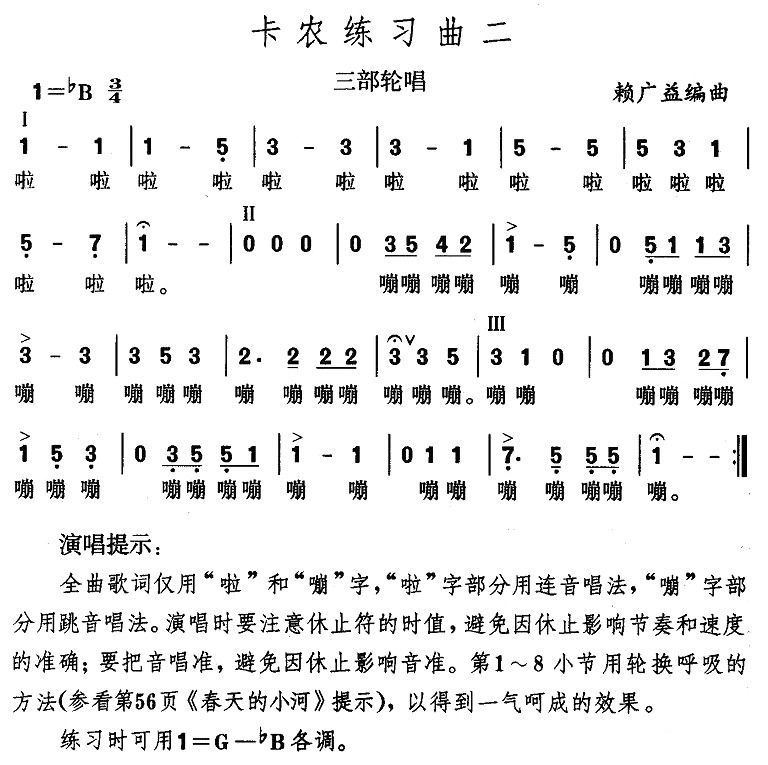 卡农练习曲二
三部轮唱
1=♭B 3/4
赖广益编曲
I
1 - 1 | 1 - 5̣ | 3 - 3 | 3 - 1 | 5 - 5 | 5 3 1 |
啦 啦 啦 啦 啦 啦 啦 啦 啦 啦 啦 啦 啦
II
5̣ - 7̣ | 1 - - | 0 0 0 | 0 3 5 4 2 | > 1 - 5̣ | 0 5̣ 1 1 3 |
啦 啦 啦。 嘣嘣 嘣嘣 嘣 嘣 嘣嘣 嘣嘣
III
> 3 - 3 | 3 5 3 | 2· 2 2 2 | 3 ∨ 3 5 | 3 1 0 | 0 1 3 2 7̣ |
嘣 嘣 嘣 嘣 嘣 嘣 嘣 嘣嘣 嘣 嘣 嘣。嘣 嘣 嘣嘣 嘣嘣
> 1 5̣ 3̣ | 0 3̣ 5̣ 5̣ 1 | > 1 - 1 | 0 1 1 | > 7̣· 5̣ 5̣ 5̣ | 1 - - :‖
嘣 嘣 嘣 嘣嘣 嘣嘣 嘣 嘣 嘣 嘣 嘣 嘣 嘣嘣 嘣。
演唱提示：
全曲歌词仅用“啦”和“嘣”字，“啦”字部分用连音唱法，“嘣”字部
分用跳音唱法。演唱时要注意休止符的时值，避免因休止影响节奏和速度
的准确；要把音唱准，避免因休止影响音准。第1～8小节用轮换呼吸的
方法(参看第56页《春天的小河》提示)，以得到一气呵成的效果。
练习时可用1=G—♭B各调。